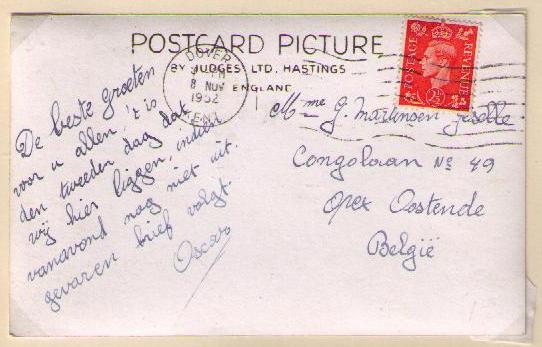 POSTCARD PICTURE
BY JUDGES, LTD. HASTINGS
ENGLAND
DOVER
8 NOV
1952
KENT
POSTAGE REVENUE
2½
De beste groeten
voor u allen, 't is
den tweeden dag dat
wij hier liggen, indien
vanavond nog niet uit.
gevaren brief volgt
Oscar
Mme G. Martinsen
Congolaan No 49
Opex Oostende
België